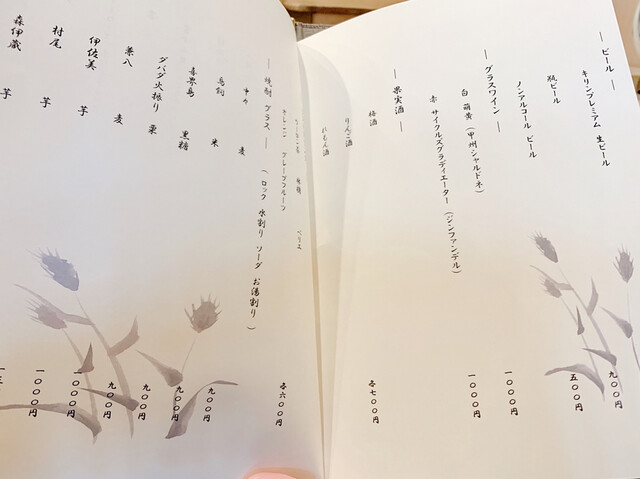 ― ビール ―
キリンプレミアム 生ビール 九〇〇円
瓶ビール
ノンアルコール ビール 五〇〇円
― グラスワイン ―
白 萌黄(甲州シャルドネ) 一〇〇〇円
赤 サイクルズグラディエーター(ジンファンデル) 一〇〇〇円
― 果実酒 ―
梅酒 各七〇〇円
りんご酒
れもん酒
ペリエ
オレンジ グレープフルーツ 各六〇〇円
― 焼酎 グラス ― (ロック 水割り ソーダ お湯割り)
麦
鳥飼 米 九〇〇円
喜界島 黒糖 九〇〇円
ダバダ火振り 栗 九〇〇円
兼八 麦 九〇〇円
伊佐美 芋 一〇〇〇円
村尾 芋 一〇〇〇円
森伊蔵 芋